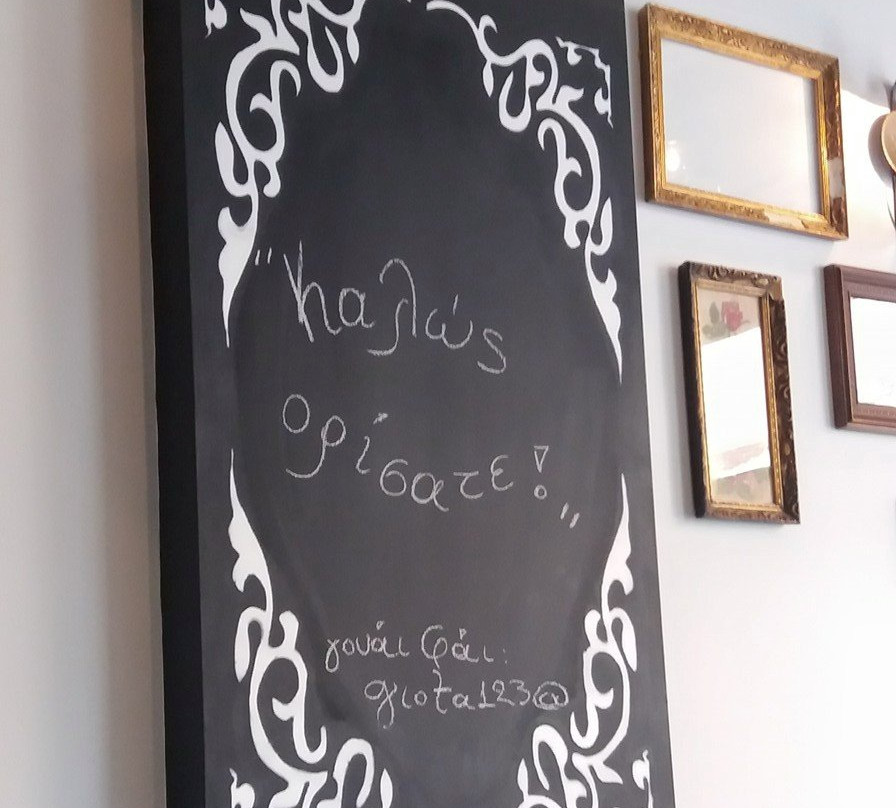 "Καλώς
ορίσατε!"
γουάι φάι:
giota123@